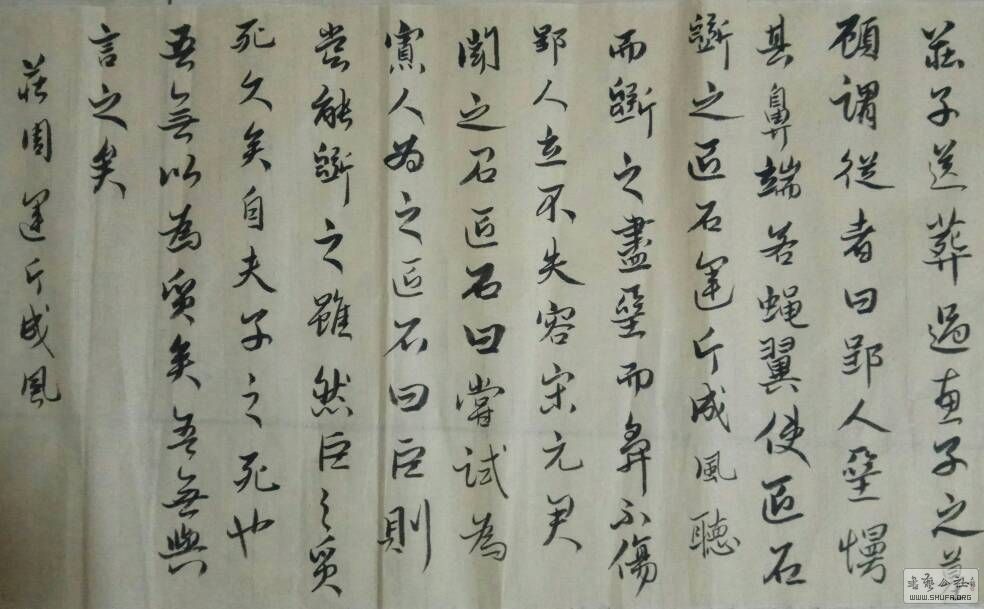 莊子送葬過惠子之墓
顧謂從者曰郢人堊慢
其鼻端若蝇翼使匠石
斲之匠石運斤成風聽
而斲之盡堊而鼻不傷
郢人立不失容宋元君
聞之召匠石曰嘗試為
寡人為之匠石曰臣則
嘗能斲之雖然臣之質
死久矣自夫子之死也
吾無以為質矣吾無與
言之矣
莊周運斤成風
WWW.SHUFA.ORG